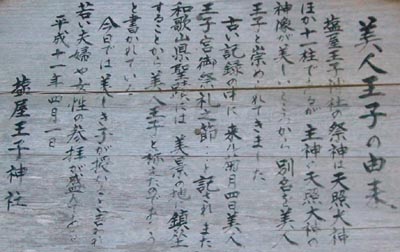 美人王子の由来
塩屋王子神社の祭神は天照大神
ほか十一柱であるが主神は天照大神
神像が美しいことから別名を美人
王子と崇められてきました
古い記録の中に来ル菊月四日美人
王子宮御祭礼之節と記されまた
和歌山県聖蹟には美景の地に鎮座
することから美人王子と称えたのであろう
と書かれている
今日では美しき子が授かると言われ
若い夫婦や女性の参拝が盛んです
平成十一年四月一日
塩屋王子神社